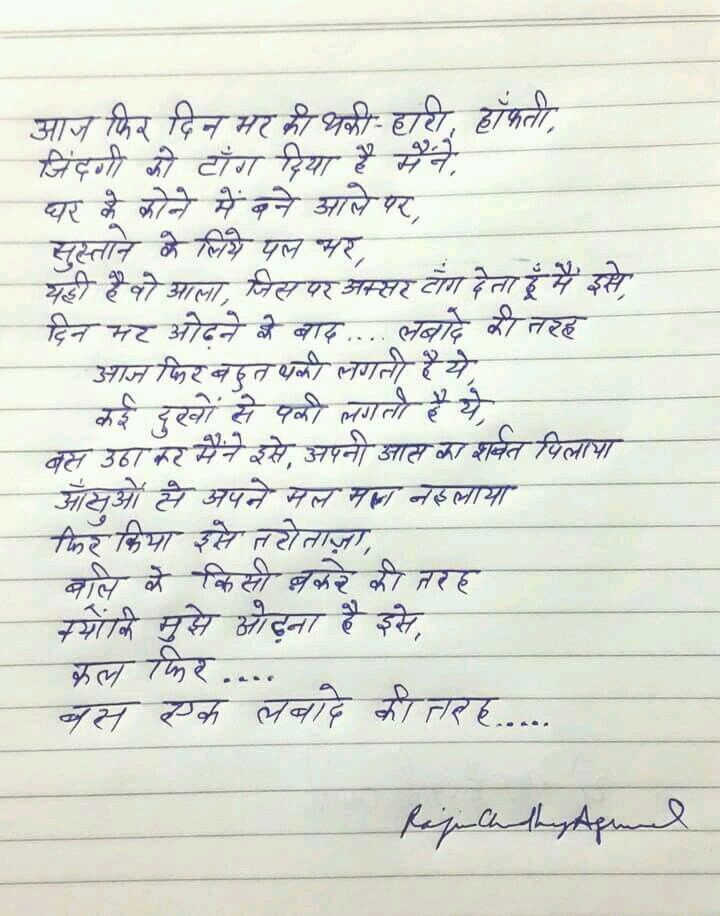 आज फिर दिन भर की थकी-हारी, हाँफती,
जिंदगी को टाँग दिया है मैंने,
घर के कोने में बने आले पर,
सुस्ताने के लिये पल भर,
यही है वो आला, जिस पर अक्सर टाँग देता हूँ मैं इसे,
दिन भर ओढ़ने के बाद.... लबादे की तरह
आज फिर बहुत थकी लगती है ये,
कई दुखों से पकी लगती है ये,
बस उठा कर मैंने इसे, अपनी आस का शर्बत पिलाया
आँसुओं से अपने मल मल नहलाया
फिर किया इसे तरोताज़ा,
बलि के किसी बकरे की तरह
क्योंकि मुझे ओढ़ना है इसे,
कल फिर....
बस एक लबादे की तरह.....